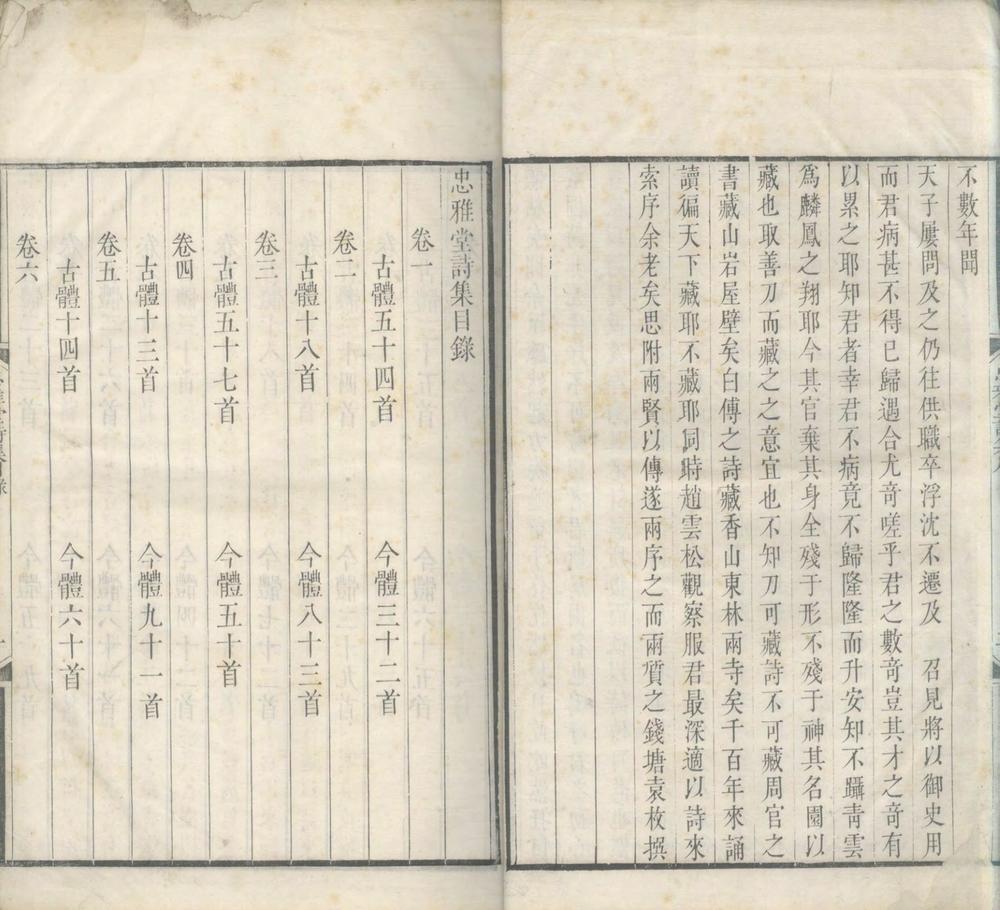 不數年聞
天子屢問及之仍往供職卒浮沈不遷及 召見將以御史用
而君病甚不得已歸遇合尤奇嗟乎君之數奇豈其才之奇有
以累之耶知君者幸君不病竟不歸隆隆而升安知不躡靑雲
爲麟鳳之翔耶今其官棄其身全殘于形不殘于神其名園以
藏也取善刀而藏之之意宜也不知刀可藏詩不可藏周官之
書藏山岩屋壁矣白傅之詩藏香山東林兩寺矣千百年來誦
讀徧天下藏耶不藏耶同時趙雲松觀察服君最深適以詩來
索序余老矣思附兩賢以傳遂兩序之而兩質之錢塘袁枚撰
忠雅堂詩集目錄
卷一
古體五十四首 今體三十二首
卷二
古體十八首 今體八十三首
卷三
古體五十七首 今體五十首
卷四
古體十三首 今體九十一首
卷五
古體十四首 今體六十首
卷六